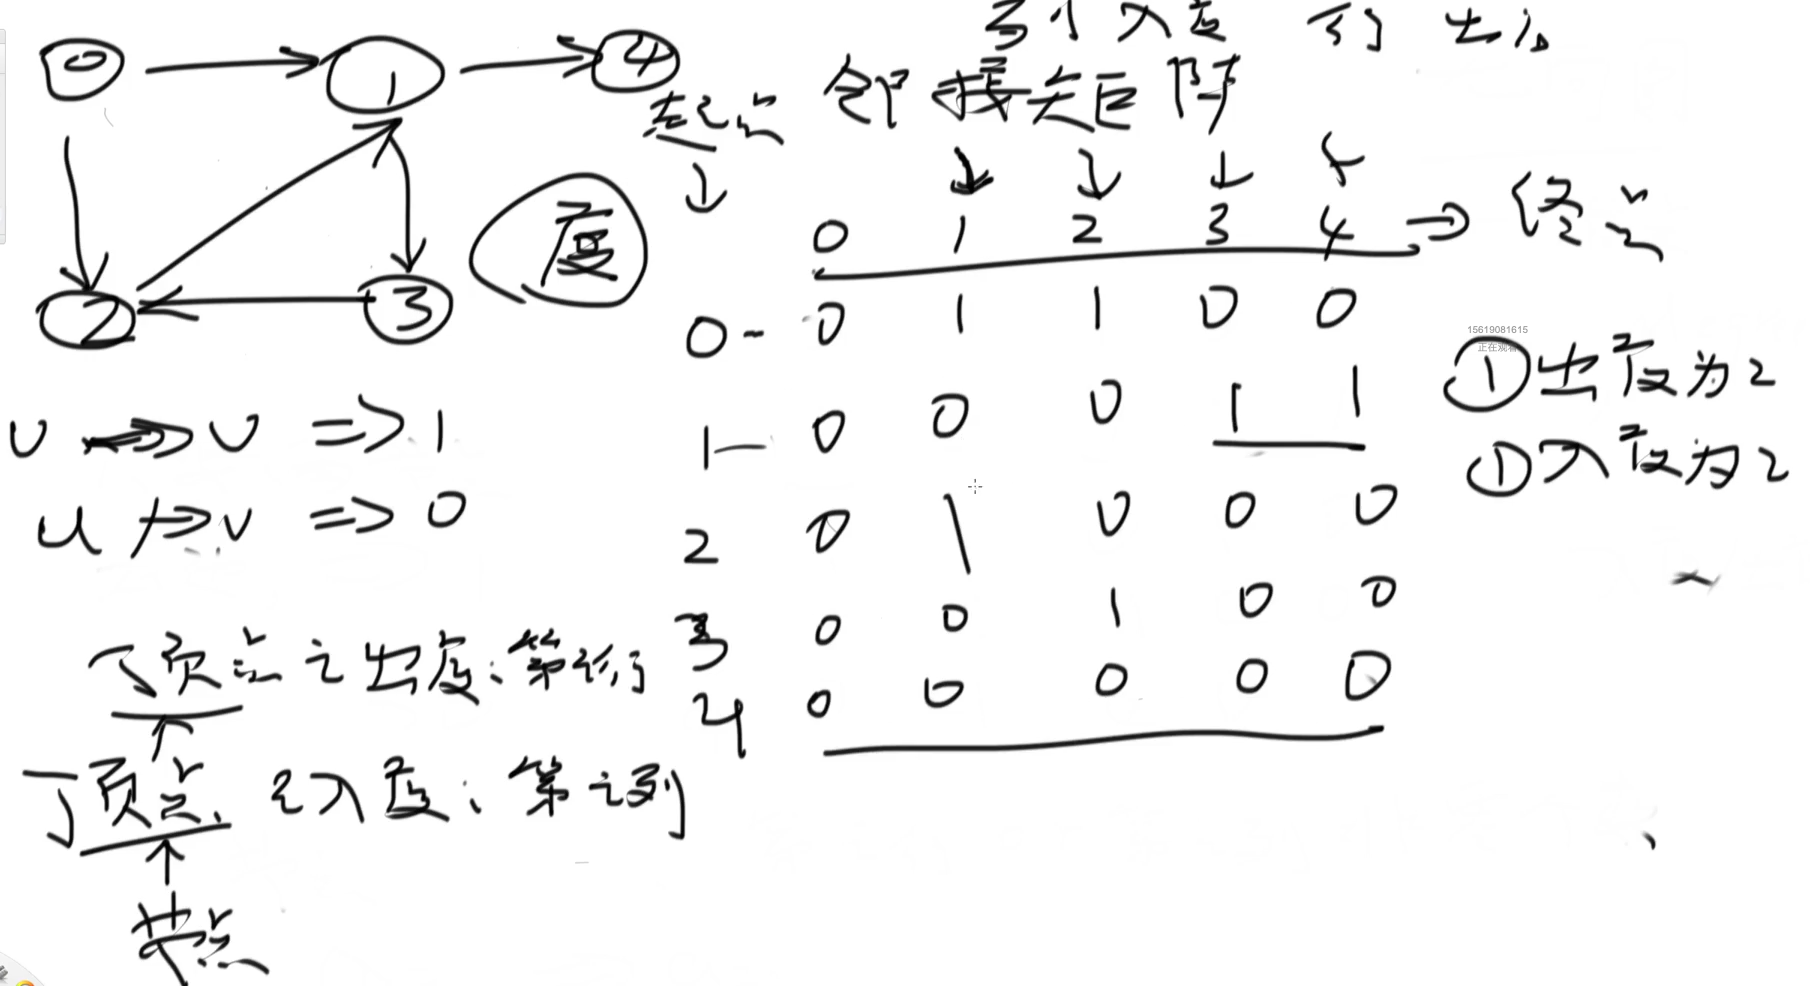 列 入度 行 出度
邻接矩阵
0 1 4
2 3
度
起点
↓
0 1 2 3 4 → 终点
0- 0 1 1 0 0
1— 0 0 0 1 1
2 0 1 0 0 0
3 0 0 1 0 0
4 0 0 0 0 0
15619081615
正在观看
① 出度为2
① 入度为2
u → v => 1
u ↛ v => 0
顶点之出度:第i行
顶点 之入度:第i列
↑